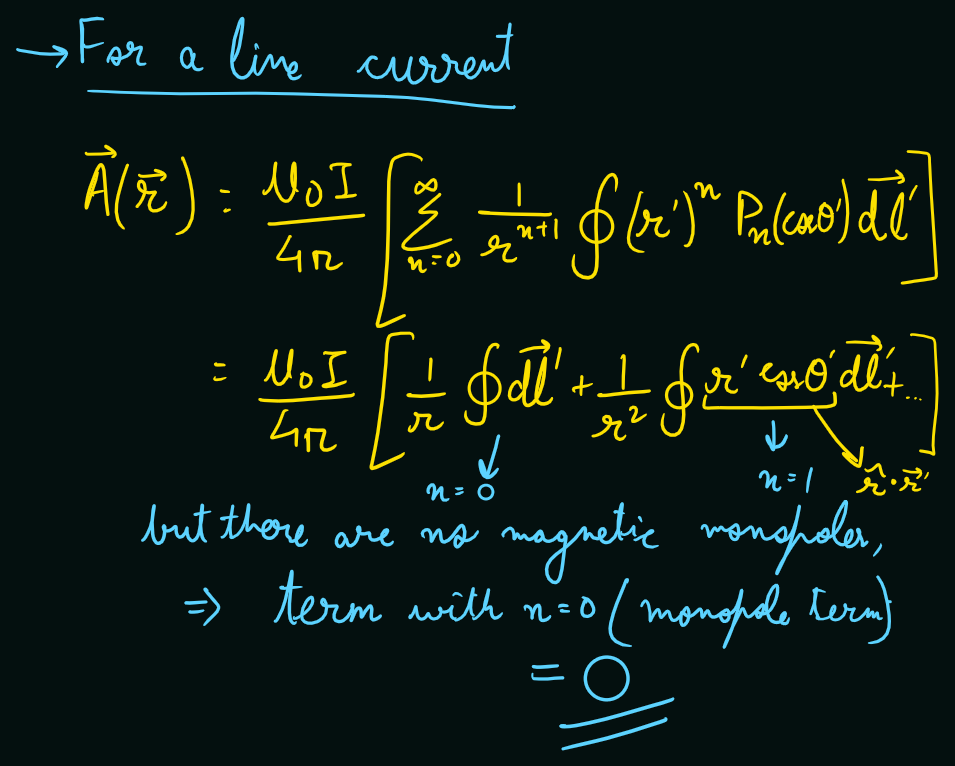 → For a line current
$\vec{A}(\vec{r}) = \frac{\mu_0 I}{4\pi} \left[ \sum_{n=0}^{\infty} \frac{1}{r^{n+1}} \oint (r')^n P_n(\cos\theta') \vec{dl}' \right]$
$= \frac{\mu_0 I}{4\pi} \left[ \frac{1}{r} \oint \vec{dl}' + \frac{1}{r^2} \oint r' \cos\theta' \vec{dl}' + \dots \right]$
n=0 n=1 $\hat{r} \cdot \vec{r}'$
but there are no magnetic monopoles,
⇒ term with n=0 (monopole term)
= 0